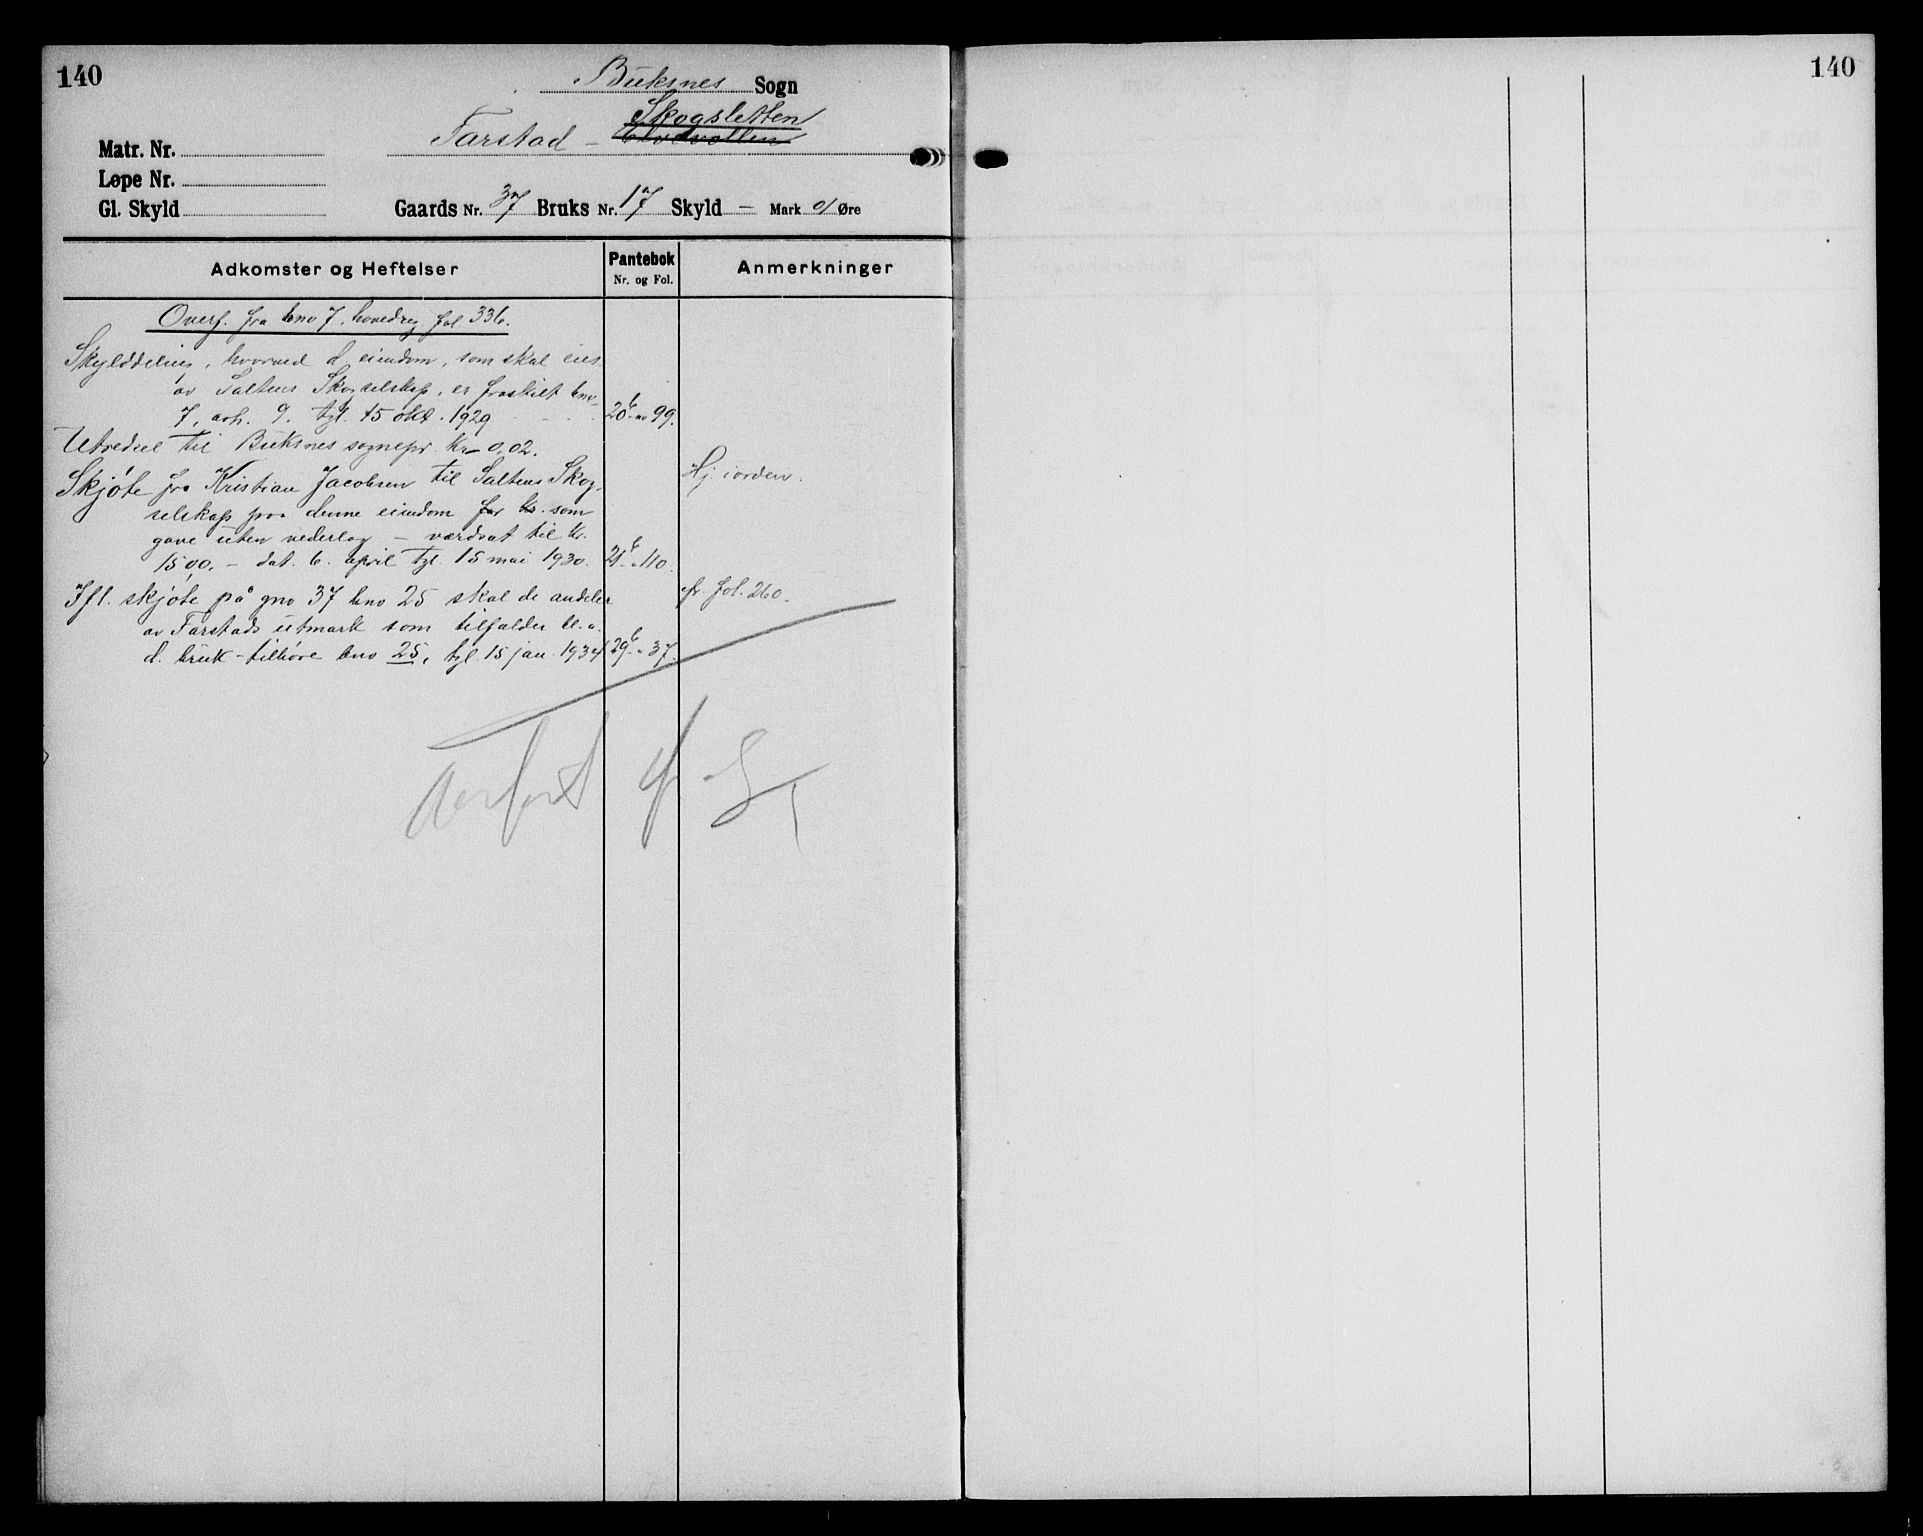 140
140
Buksnes Sogn
Skogsletten
Farstad –
Matr. Nr.
Løpe Nr.
Gl. Skyld
Gaards Nr. 37 Bruks Nr. 17 Skyld – Mark 01 Øre
Adkomster og Heftelser
Pantebok
Nr. og Fol.
Anmerkninger
Overf. fra bno 7, hovedreg fol 336.
Skylddeling, hvorved d. eiendom, som skal eies
av Saltens Skogselskap, er fraskilt bno
7, avh. 9. tgl. 15 okt. 1929 20 b 99.
Utredsel til Buksnes sognepr. kr 0,02.
Skjøte fra Kristian Jacobsen til Saltens Skog- Hj. iorden.
selskap paa denne eiendom for kr. som
gave uten vederlag – værdsat til kr.
1500.– dat. 6. april tgl. 15 mai 1930. 21 b 110
Ifl. skjøte på gno 37 bno 25 skal de andeler cfr. fol. 260.
av Farstads utmark som tilfalder bl.a.
d. bruk – tilhøre bno 25, tgl. 15 jan. 1934 29 b 37.
Overført